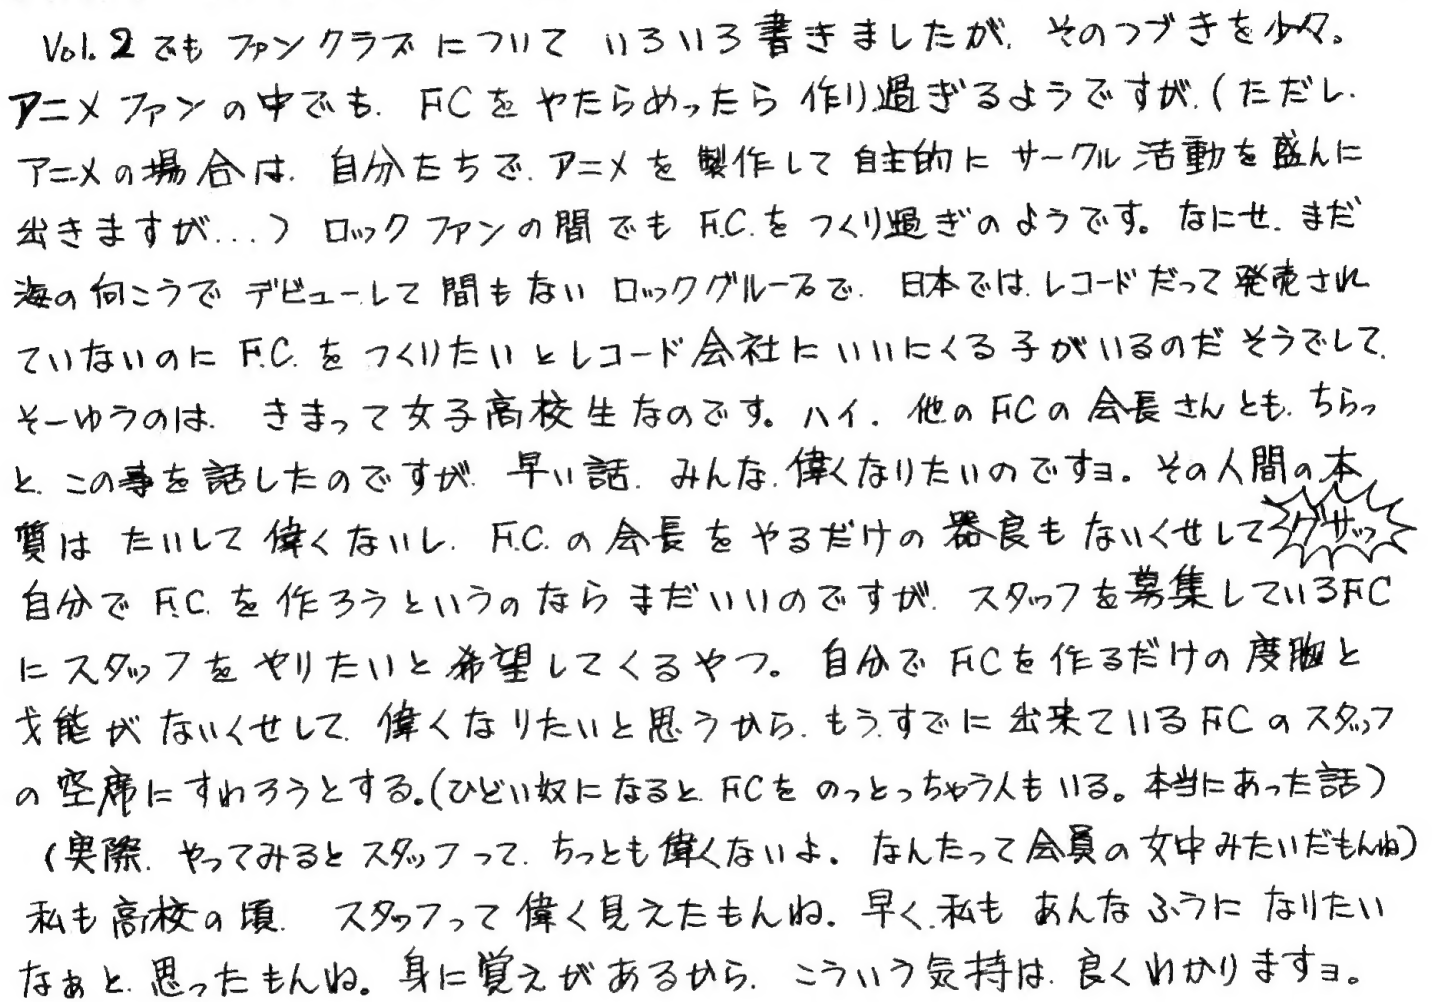 Vol.2でも ファンクラブについて いろいろ書きましたが、そのつづきを少々。
アニメファンの中でも、FCをやたらめったら作り過ぎるようですが、(ただし、
アニメの場合は、自分たちで、アニメを製作して自主的に サークル活動を盛んに
出きますが...) ロックファンの間でも F.C.をつくり過ぎのようです。なにせ、まだ
海の向こうで デビューして間もない ロックグループで、日本では、レコードだって発売され
ていないのに F.C.を つくりたいとレコード会社にいいにくる子がいるのだそうでして、
そーゆうのは、きまって女子高校生なのです。ハイ、他のFCの会長さんとも、ちらっ
と、この事を話したのですが、早い話、みんな、偉くなりたいのですョ。その人間の本
質は たいして偉くないし、F.C.の会長をやるだけの器良もないくせしてグサッ
自分でF.C.を作ろうというのならまだいいのですが、スタッフを募集しているFC
にスタッフをやりたいと希望してくるやつ。自分でFCを作るだけの度胸と
才能がないくせして、偉くなりたいと思うから、もう、すでに出来ているFCのスタッフ
の空席にすわろうとする。(ひどい奴になると、FCをのっとっちゃう人もいる。本当にあった話)
(実際、やってみるとスタッフって、ちっとも偉くないよ。なんたって会員の女中みたいだもんね)
私も高校の頃、スタッフって偉く見えたもんね。早く、私も あんなふうになりたい
なぁと、思ったもんね。身に覚えがあるから、こういう気持は、良くわかりますョ。